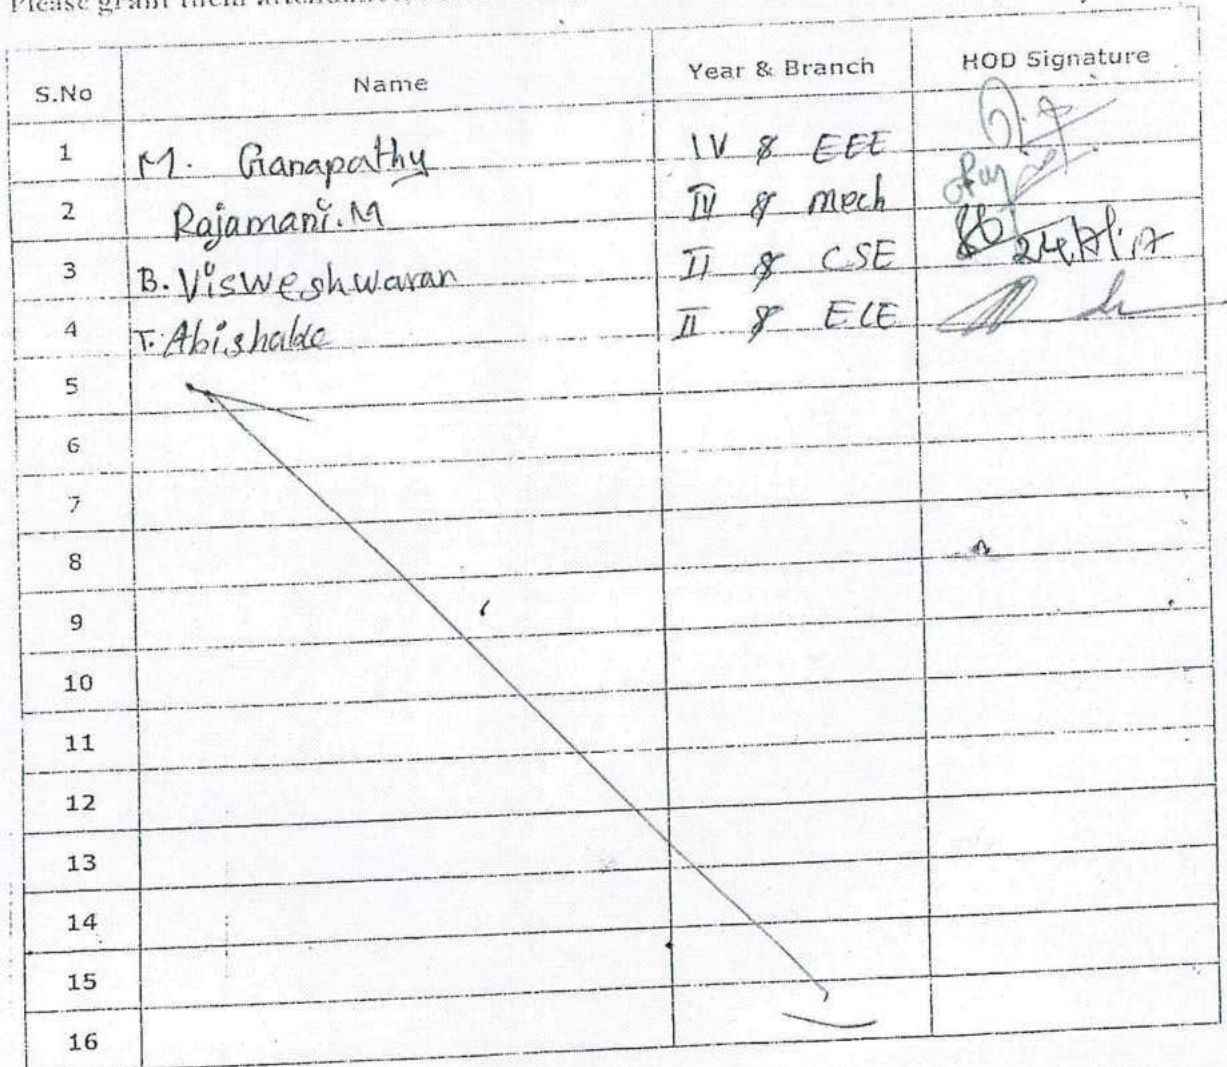 Please grant them attendance
S.No Name Year & Branch HOD Signature
1 M. Ganapathy IV & EEE
2 Rajamani.M IV & Mech
3 B. Visweshwaran II & CSE
4 T. Abishake II & ECE
5
6
7
8
9
10
11
12
13
14
15
16